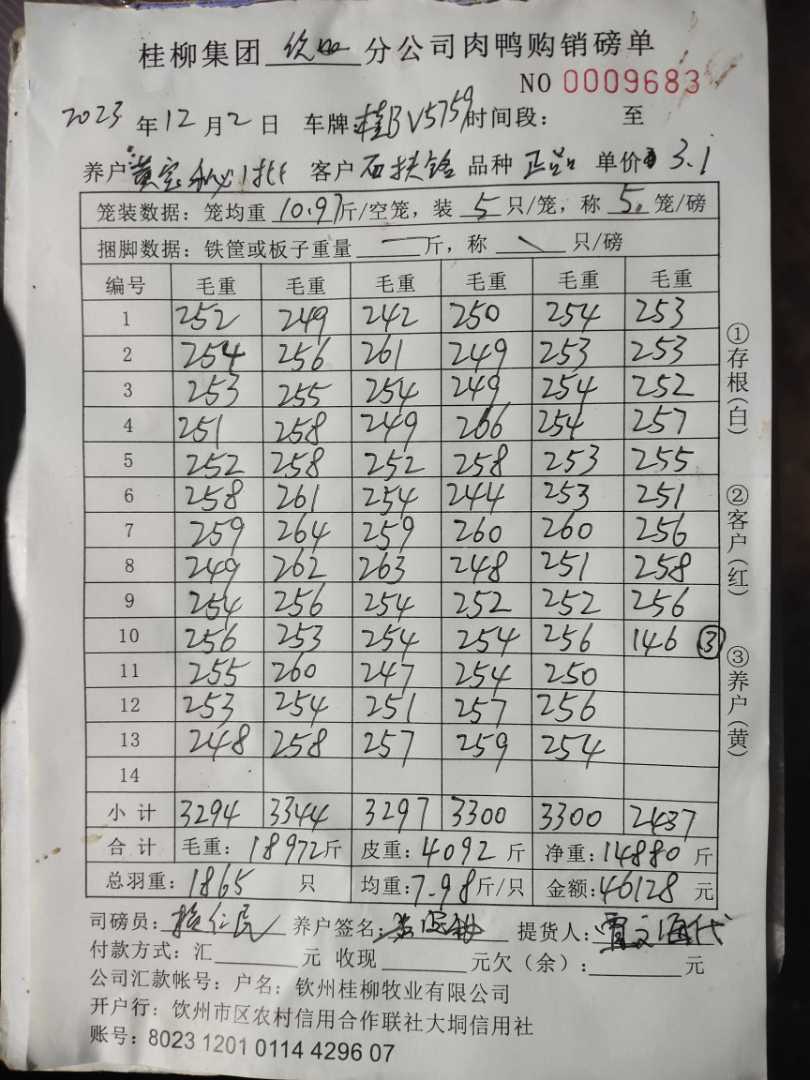 桂柳集团 钦品 分公司肉鸭购销磅单
NO 0009683
2023 年 12 月 2 日 车牌:桂BV5759 时间段: 至
养户 黄 客户 石扶铭 品种 正品 单价 3.1
笼装数据: 笼均重 10.97 斤/空笼, 装 5 只/笼, 称 5 笼/磅
捆脚数据: 铁筐或板子重量 — 斤, 称 \ 只/磅
编号 毛重 毛重 毛重 毛重 毛重 毛重
1 252 249 242 250 254 253
2 254 256 261 249 253 253
3 253 255 254 249 254 252
4 251 258 249 266 254 257
5 252 258 252 258 253 255
6 258 261 254 244 253 251
7 259 264 259 260 260 256
8 249 262 263 248 251 258
9 254 256 254 252 252 256
10 256 253 254 254 256 146 ③
11 255 260 247 254 250
12 253 254 251 257 256
13 248 258 257 259 254
14
小计 3294 3344 3297 3300 3300 2437
合计 毛重: 18972 斤 皮重: 4092 斤 净重: 14880 斤
总羽重: 1865 只 均重: 7.98 斤/只 金额: 46128 元
司磅员: 养户签名: 提货人:
付款方式: 汇 元 收现 元 欠(余): 元
公司汇款帐号: 户名: 钦州桂柳牧业有限公司
开户行: 钦州市区农村信用合作联社大垌信用社
账号: 8023 1201 0114 4296 07
①存根(白)
②客户(红)
③养户(黄)